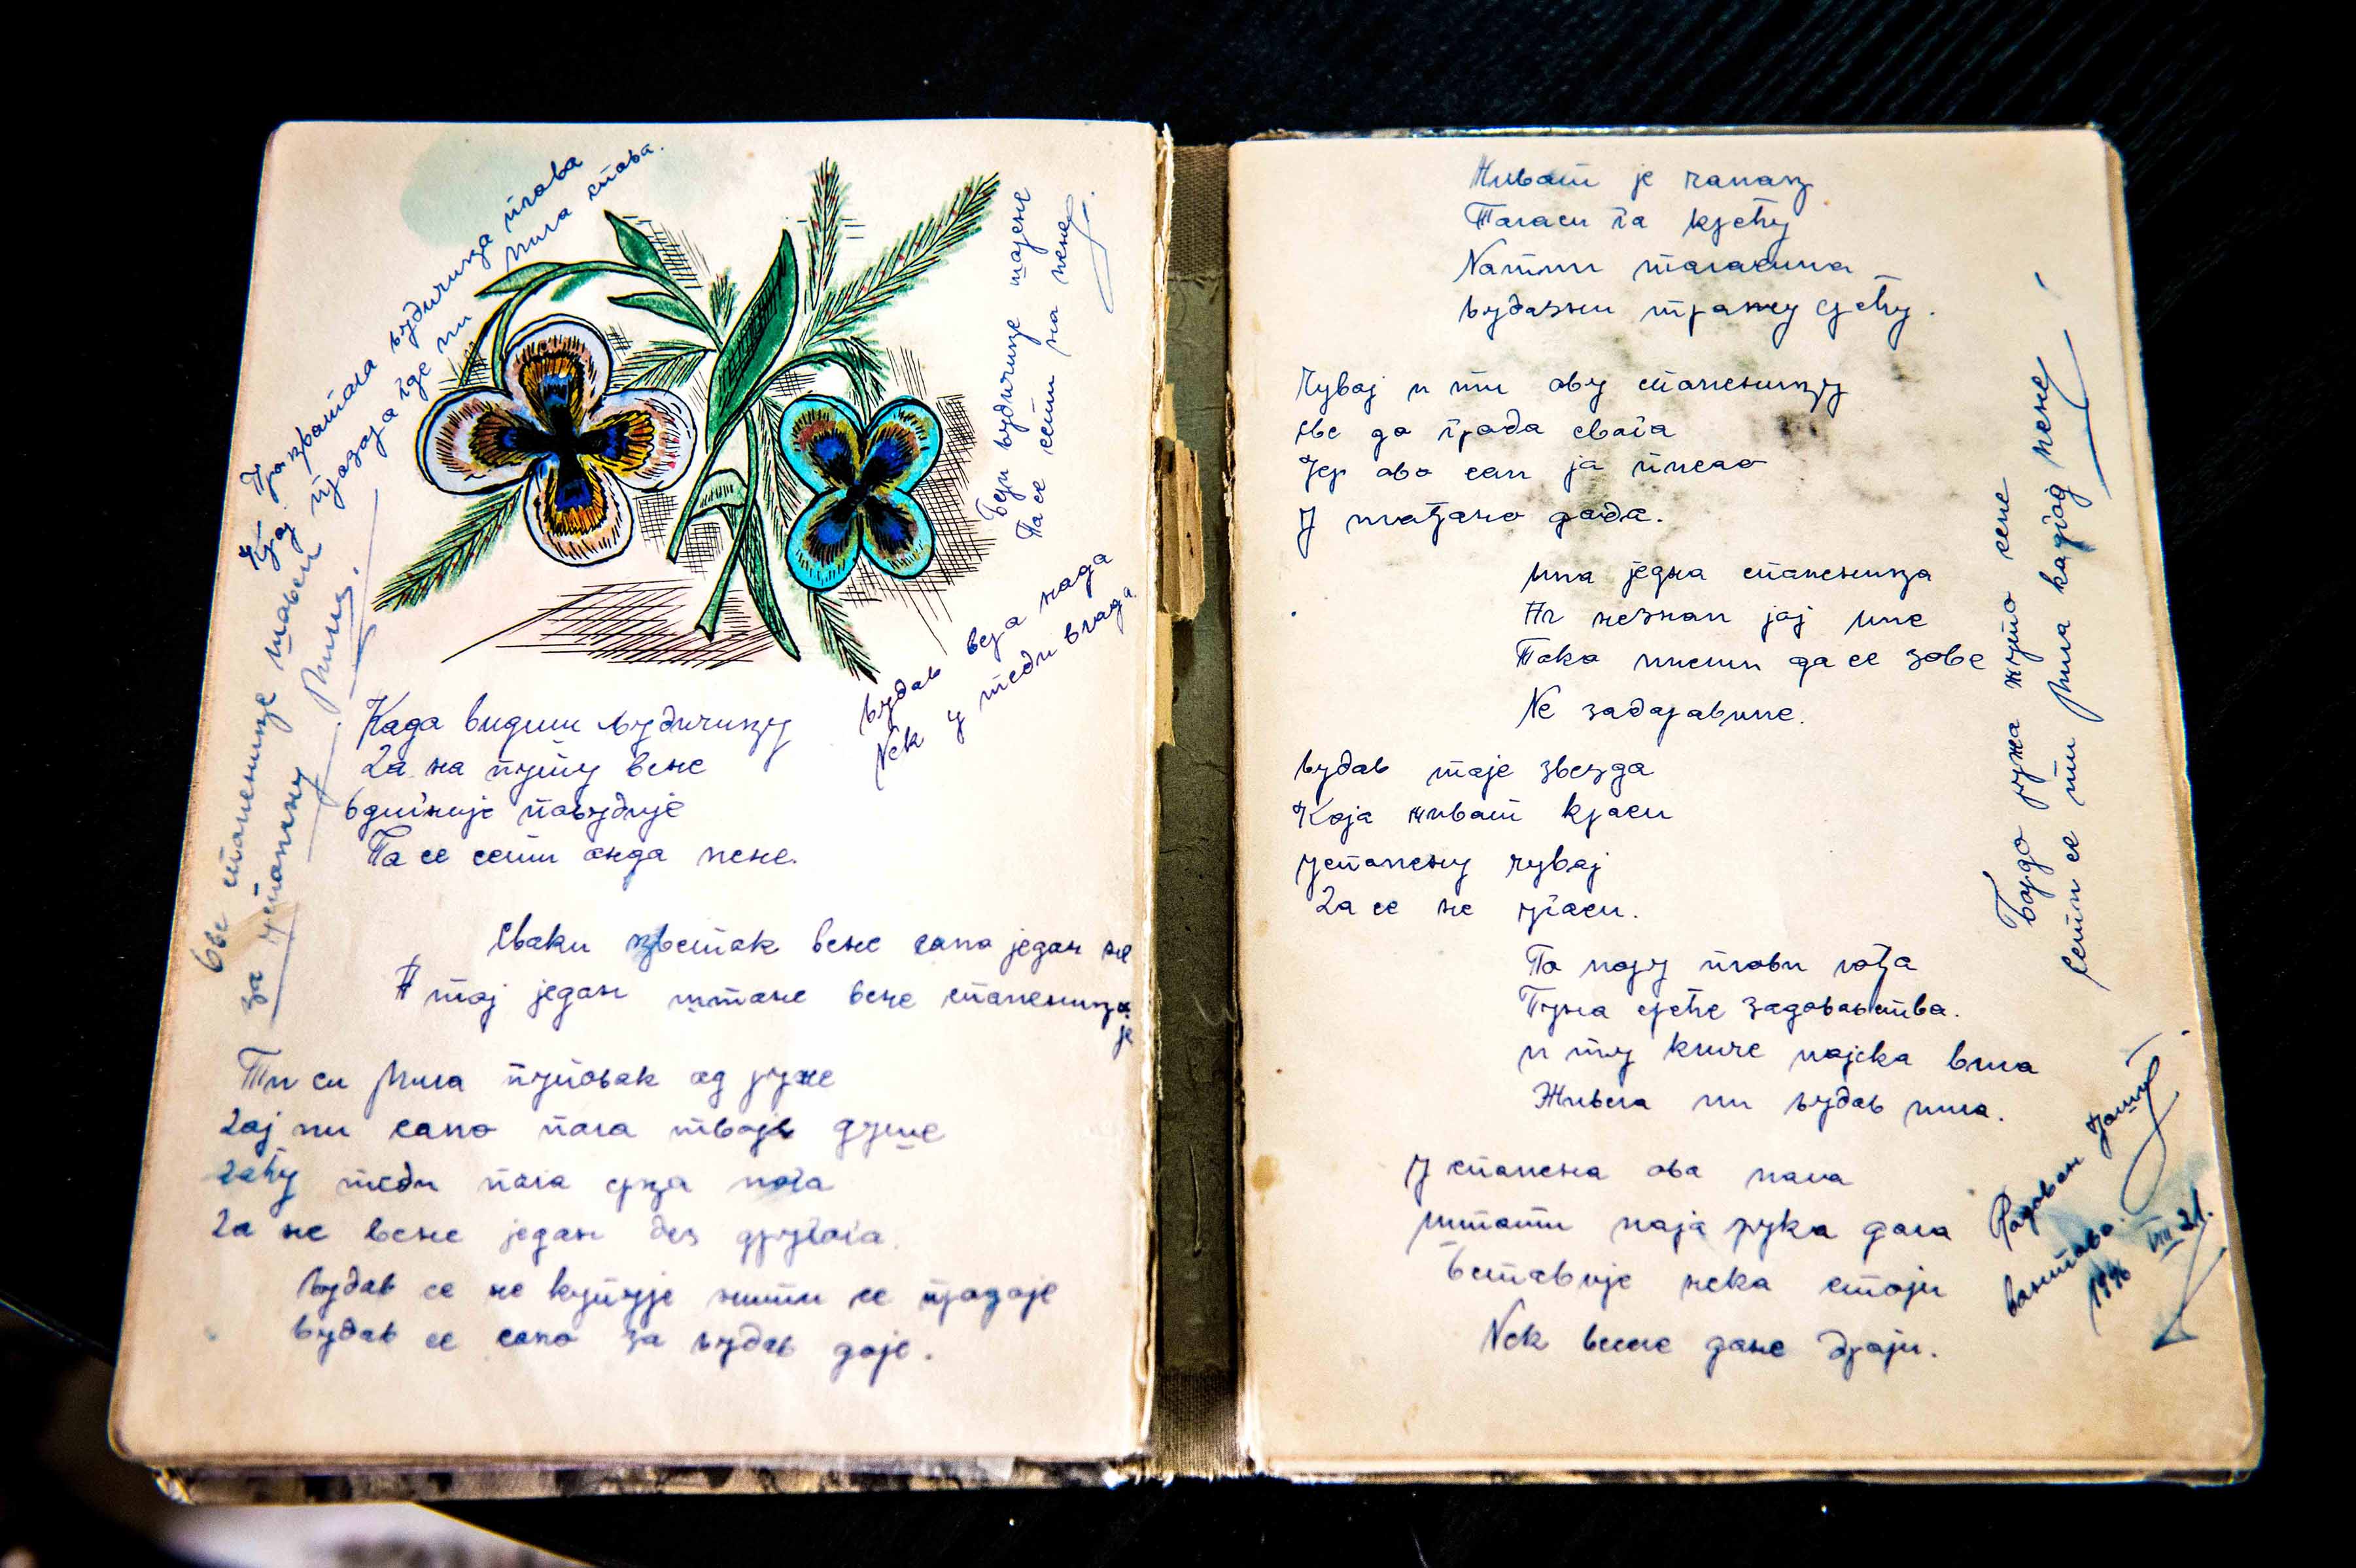 Узраштала љубичица плава
Крај прозора где ми Мила спава.
Бери љубичице плаве
Па се сети на мене.
Љубав веза нада
Nек у теби влада.
Све споменице
за успомену Мили.
Када видиш љубичицу
Да на путу вене
Па се сети онда мене.
Сваки цветак вене само један не
А тај један што не вене споменица
је
Ти си Мила пупољак од руже
Дај ми само пола твоје душе
Даћу теби пола срца мога
Да не вене један без другога.
Љубав се не купује нити се продаје
Љубав се само за љубав даје.
Живот је чамац
Таласи га крећу
Nа тим таласима
Љубазни траже срећу.
Чувај и ти ову споменицу
Све до гроба свога
Јер ово сам ја писао
У млађано доба.
Има једна споменица
Ал незнам јој име
Тако мисли да се зове
Nе заборавиме.
Љубав твоје звезда
Која живот краси
Успомену чувај
Да се не угаси.
По мору плови лађа
Пуна среће задовољства.
и ту кличе мајска вила
Живела ми љубав мила.
Успомена ова мала
Што ти моја рука дала
Nек веселе дане броји.
Бордо ружа жуто семе
Сети се ти Мила кадгод мене
Радован
VIII 21.